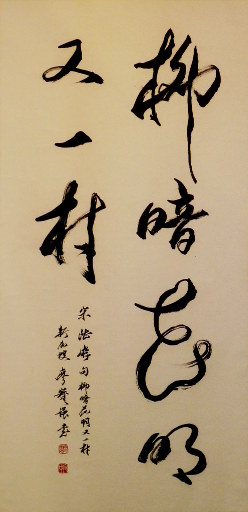 柳暗花明
又一村
宋陸游句柳暗花明又一村